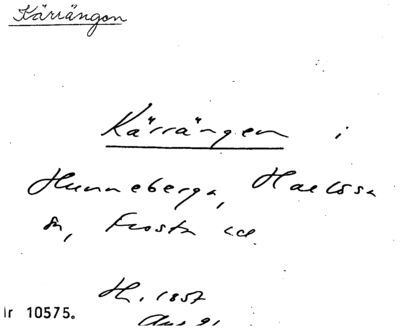 Kärrängen
Kärrängen i
Hunneberga, Harlösa
sn, Frosta hd.
H. 1857
Nr 10575.